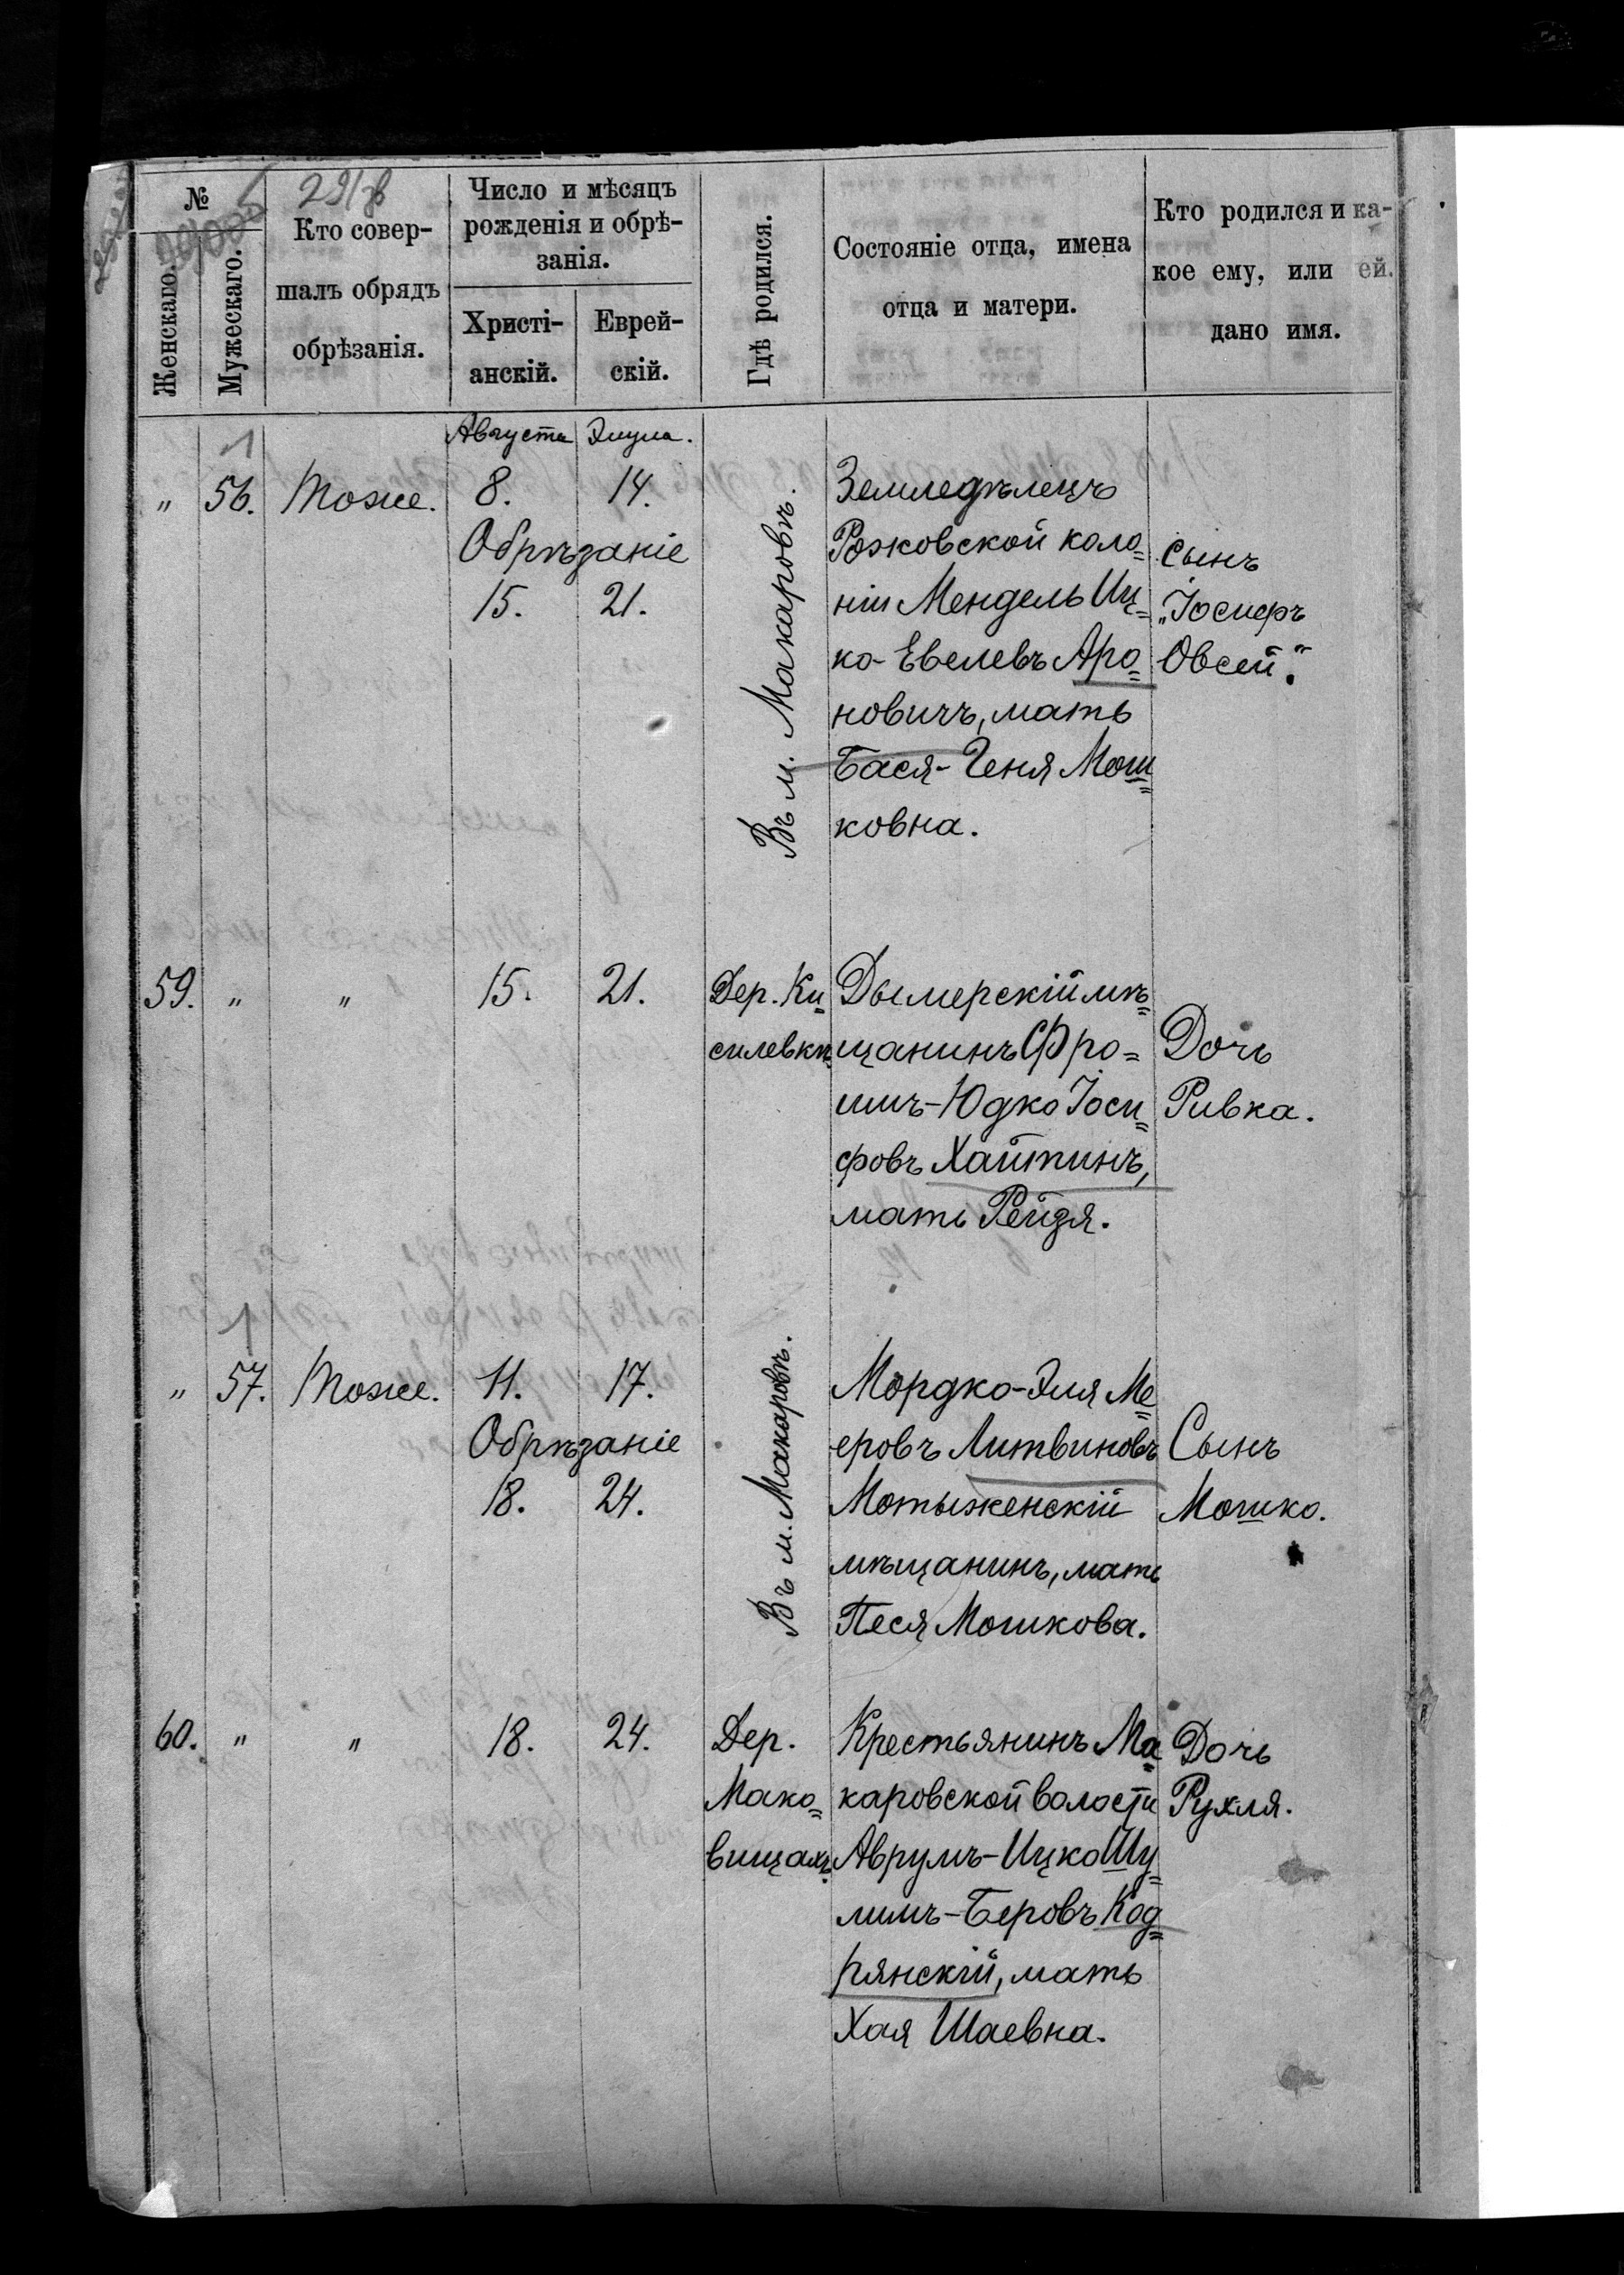 №
Женскаго.
Мужескаго.
Кто совер-
шалъ обрядъ
обрѣзанія.
Число и мѣсяцъ
рожденія и обрѣ-
занія.
Христі-
анскій.
Еврей-
скій.
Гдѣ родился.
Состояніе отца, имена
отца и матери.
Кто родился и ка-
кое ему, или ей.
дано имя.
Августа Элула.
1
„ 56. Тоже. 8. 14.
Обрѣзаніе
15. 21.
Въ м. Макаровѣ.
Земледѣлецъ
Рожовской коло=
ніи Мендель Иц=
ко-Евелевъ Аро=
новичъ, мать
Бася-Геня Мош=
ковна.
Сынъ
„Іосифъ
Овсей“.
59. „ „ 15. 21.
Дер. Ки=
силевкѣ
Дымерскій мѣ=
щанинъ Фро=
имъ-Юдко Іоси=
фовъ Хайтинъ,
мать Рейзя.
Дочь
Ривка.
1
„ 57. Тоже. 11. 17.
Обрѣзаніе
18. 24.
Въ м. Макаровѣ.
Мордко-Эля Ме=
еровъ Литвиновъ
Мотыженскій
мѣщанинъ, мать
Песя Мошкова.
Сынъ
Мошко.
60. „ „ 18. 24.
Дер.
Мако=
вищахъ.
Крестьянинъ Ма=
каровской волости
Аврумъ-Ицко Шу=
лимъ-Беровъ Код=
рянскій, мать
Хая Шаевна.
Дочь
Рухля.